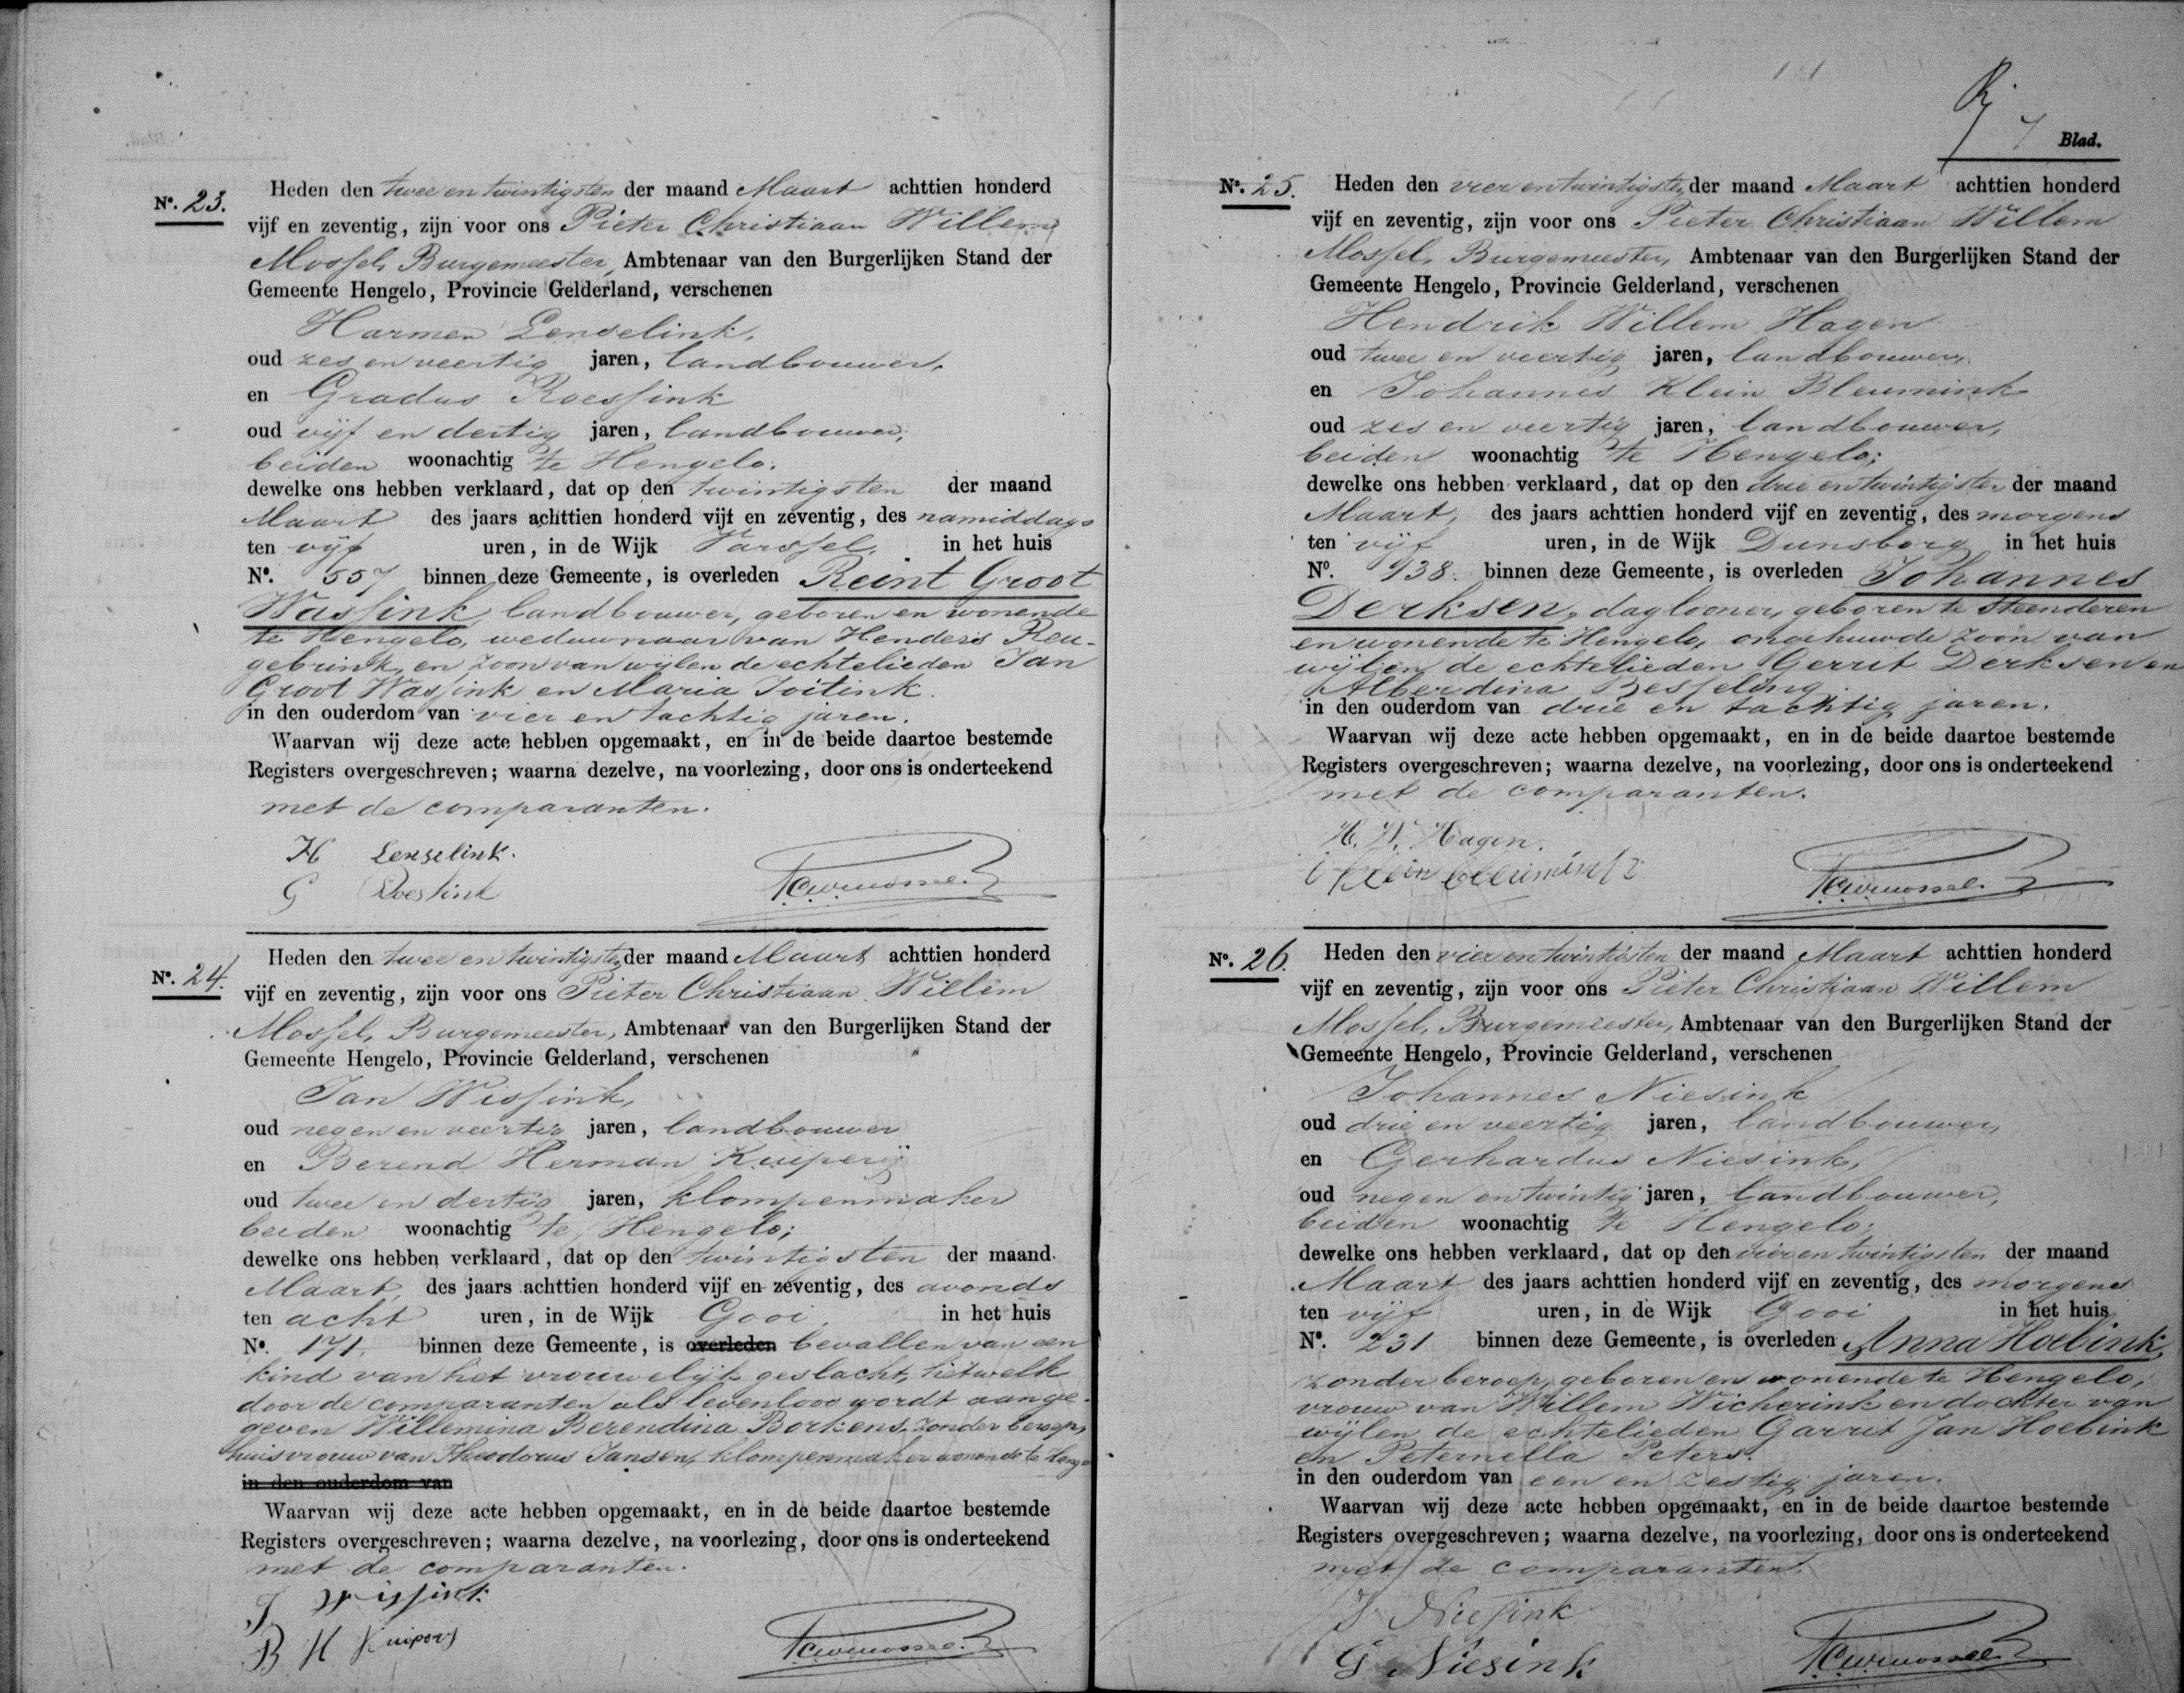 No. 23.
Heden den twee en twintigsten der maand Maart achttien honderd
vijf en zeventig, zijn voor ons Pieter Christiaan Willem
Mossel, Burgemeester, Ambtenaar van den Burgerlijken Stand der
Gemeente Hengelo, Provincie Gelderland, verschenen
Harmen Lenselink,
oud zes en veertig jaren, landbouwer,
en Gradus Roessink
oud vijf en dertig jaren, landbouwer,
beiden woonachtig te Hengelo;
dewelke ons hebben verklaard, dat op den twintigsten der maand
Maart des jaars achttien honderd vijf en zeventig, des namiddags
ten vijf uren, in de Wijk Varssel, in het huis
No. 557 binnen deze Gemeente, is overleden Reint Groot
Wassink, landbouwer, geboren en wonende
te Hengelo, weduwnaar van Henders Reu-
gebrink, en zoon van wijlen de echtelieden Jan
Groot Wassink en Maria
in den ouderdom van vier en tachtig jaren.
Waarvan wij deze acte hebben opgemaakt, en in de beide daartoe bestemde
Registers overgeschreven; waarna dezelve, na voorlezing, door ons is onderteekend
met de comparanten.
H Lenselink.
G Roessink
PCWMossel
No. 24.
Heden den twee en twintigsten der maand Maart achttien honderd
vijf en zeventig, zijn voor ons Pieter Christiaan Willem
Mossel, Burgemeester, Ambtenaar van den Burgerlijken Stand der
Gemeente Hengelo, Provincie Gelderland, verschenen
Jan Wissink,
oud negen en veertig jaren, landbouwer
en Berend Herman Kuipers
oud twee en dertig jaren, klompenmaker
beiden woonachtig te Hengelo;
dewelke ons hebben verklaard, dat op den twintigsten der maand
Maart, des jaars achttien honderd vijf en zeventig, des avonds
ten acht uren, in de Wijk Gooi, in het huis
No. 171, binnen deze Gemeente, is overleden bevallen van een
kind van het vrouwelijk geslacht, hetwelk
door de comparanten als levenloos wordt aange-
geven Willemina Berendina Borkens, zonder beroep,
huisvrouw van Theodorus Jansen, klompenmaker wonende te Heng
in den ouderdom van
Waarvan wij deze acte hebben opgemaakt, en in de beide daartoe bestemde
Registers overgeschreven; waarna dezelve, na voorlezing, door ons is onderteekend
met de comparanten.
J Wissink
B H Kuipers
PCWMossel
7 Blad.
No. 25.
Heden den vier en twintigsten der maand Maart achttien honderd
vijf en zeventig, zijn voor ons Pieter Christiaan Willem
Mossel, Burgemeester, Ambtenaar van den Burgerlijken Stand der
Gemeente Hengelo, Provincie Gelderland, verschenen
Hendrik Willem Hagen
oud twee en veertig jaren, landbouwer,
en Johannes Klein Bleumink
oud zes en veertig jaren, landbouwer,
beiden woonachtig te Hengelo;
dewelke ons hebben verklaard, dat op den drie en twintigsten der maand
Maart, des jaars achttien honderd vijf en zeventig, des morgens
ten vijf uren, in de Wijk Dunsborg in het huis
No. 938. binnen deze Gemeente, is overleden Johannes
Derksen, daglooner, geboren te Steenderen
en wonende te Hengelo, ongehuwde zoon van
wijlen de echtelieden Gerrit Derksen en
Alberdina Besseling
in den ouderdom van drie en tachtig jaren.
Waarvan wij deze acte hebben opgemaakt, en in de beide daartoe bestemde
Registers overgeschreven; waarna dezelve, na voorlezing, door ons is onderteekend
met de comparanten.
H. W. Hagen.
klein bleumink
PCWMossel
No. 26.
Heden den vier en twintigsten der maand Maart achttien honderd
vijf en zeventig, zijn voor ons Pieter Christiaan Willem
Mossel, Burgemeester, Ambtenaar van den Burgerlijken Stand der
Gemeente Hengelo, Provincie Gelderland, verschenen
Johannes Niesink
oud drie en veertig jaren, landbouwer,
en Gerhardus Niesink,
oud negen en twintig jaren, landbouwer,
beiden woonachtig te Hengelo;
dewelke ons hebben verklaard, dat op den vier en twintigsten der maand
Maart des jaars achttien honderd vijf en zeventig, des morgens
ten vijf uren, in de Wijk Gooi in het huis
No. 231 binnen deze Gemeente, is overleden Anna Hoebink,
zonder beroep, geboren en wonende te Hengelo,
vrouw van Willem Wicherink en dochter van
wijlen de echtelieden Garrit Jan Hoebink
en Peternella Peters.
in den ouderdom van een en zestig jaren.
Waarvan wij deze acte hebben opgemaakt, en in de beide daartoe bestemde
Registers overgeschreven; waarna dezelve, na voorlezing, door ons is onderteekend
met de comparanten.
J Niesink
G Niesink
PCWMossel